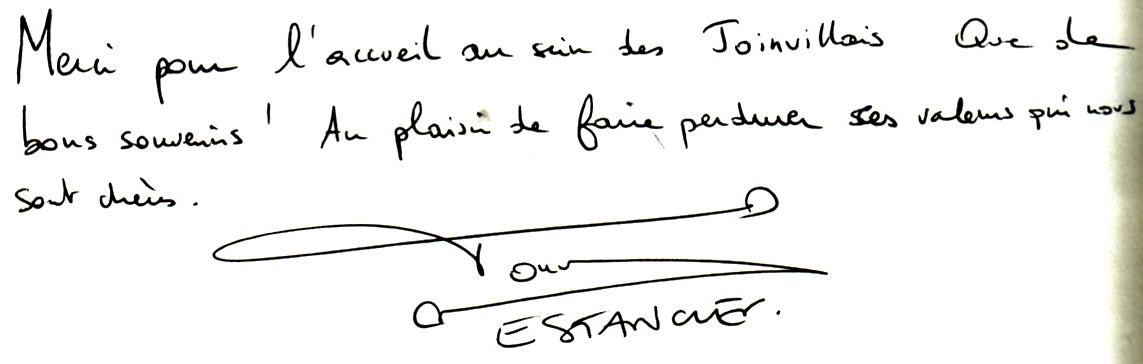 Merci pour l'accueil au sein des Joinvillais Que de
bons souvenirs ! Au plaisir de faire perdurer ses valeurs qui nous
sont chères.
ESTANGUET.